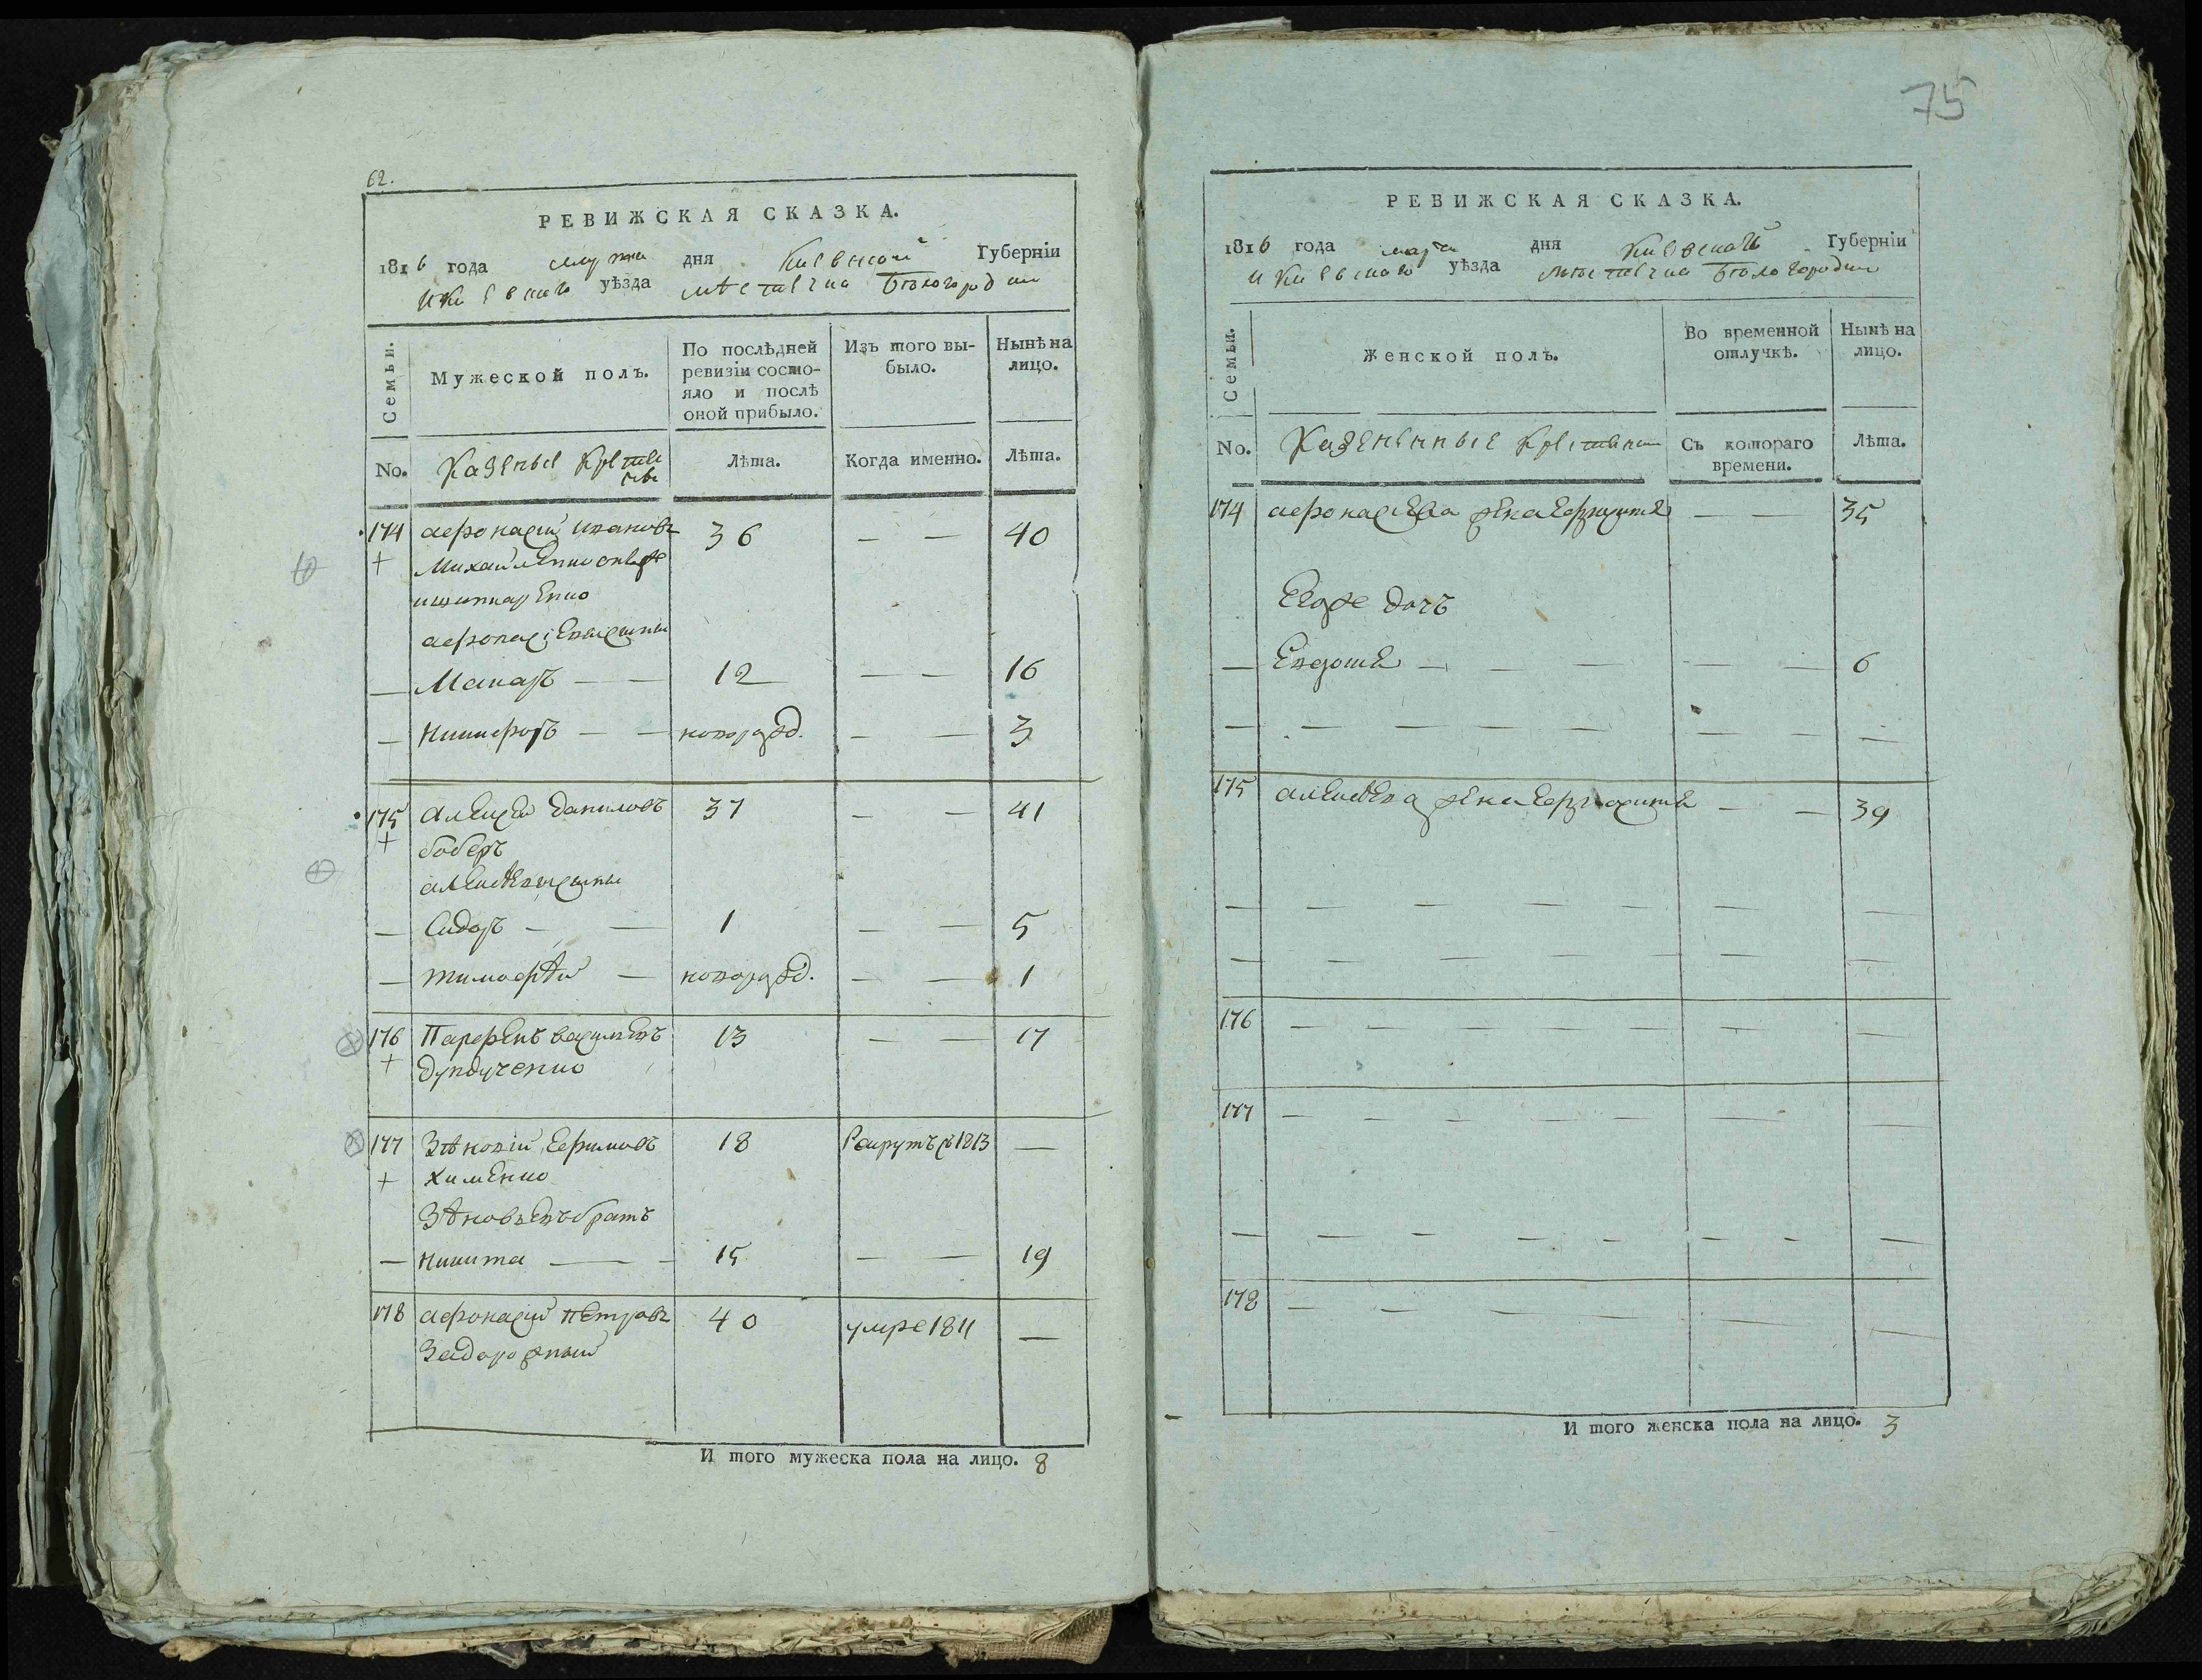 62.
РЕВИЖСКАЯ СКАЗКА.
1816 года марта дня Киевской Губерніи
и Киевскаго уѣзда мѣстечка Бѣлогородки
Семьи.
Мужеской полъ.
По послѣдней ревизіи состояло и послѣ оной прибыло.
Изъ того выбыло.
Нынѣ на лицо.
No.
Казеные Крестьяне
Лѣта.
Когда именно.
Лѣта.
174 афонасий ивановъ 36 — — 40
Михайленко онъже
афонасіевысыны
— Макаръ — — 12 — — 16
— Никифоръ — — новорожд. — — 3
175 Алексей даниловъ 37 — — 41
боберъ
алексѣевысыны
— Сидоръ — — 1 — — 5
— тимофѣй — новорожд. — — 1
176 Парфенъ васильевъ 13 — — 17
дундученко
177 Зѣновій Ефимовъ 18 Рекрутъ съ 1813 —
хименко
Зѣновьевъ братъ
— никита — — 15 — — 19
178 афонасий петровъ 40 умре 1811 —
Задорожный
И того мужеска пола на лицо. 8
75
РЕВИЖСКАЯ СКАЗКА.
1816 года марта дня Киевской Губерніи
и Киевскаго уѣзда мѣстечка Бѣлогородки
Семьи.
Женской полъ.
Во временной отлучкѣ.
Нынѣ на лицо.
No.
Казенные Крестьяне
Съ котораго времени.
Лѣта.
174 афонасиева жена — — 35
Егоже дочъ
— — — — — 6
— — — — — — — —
175 алексѣева жена — — 39
— — — — — — — —
— — — — — — — —
176 — — — — — — — —
177 — — — — — — — —
— — — — — — — —
178 — — — — —
И того женска пола на лицо. 3